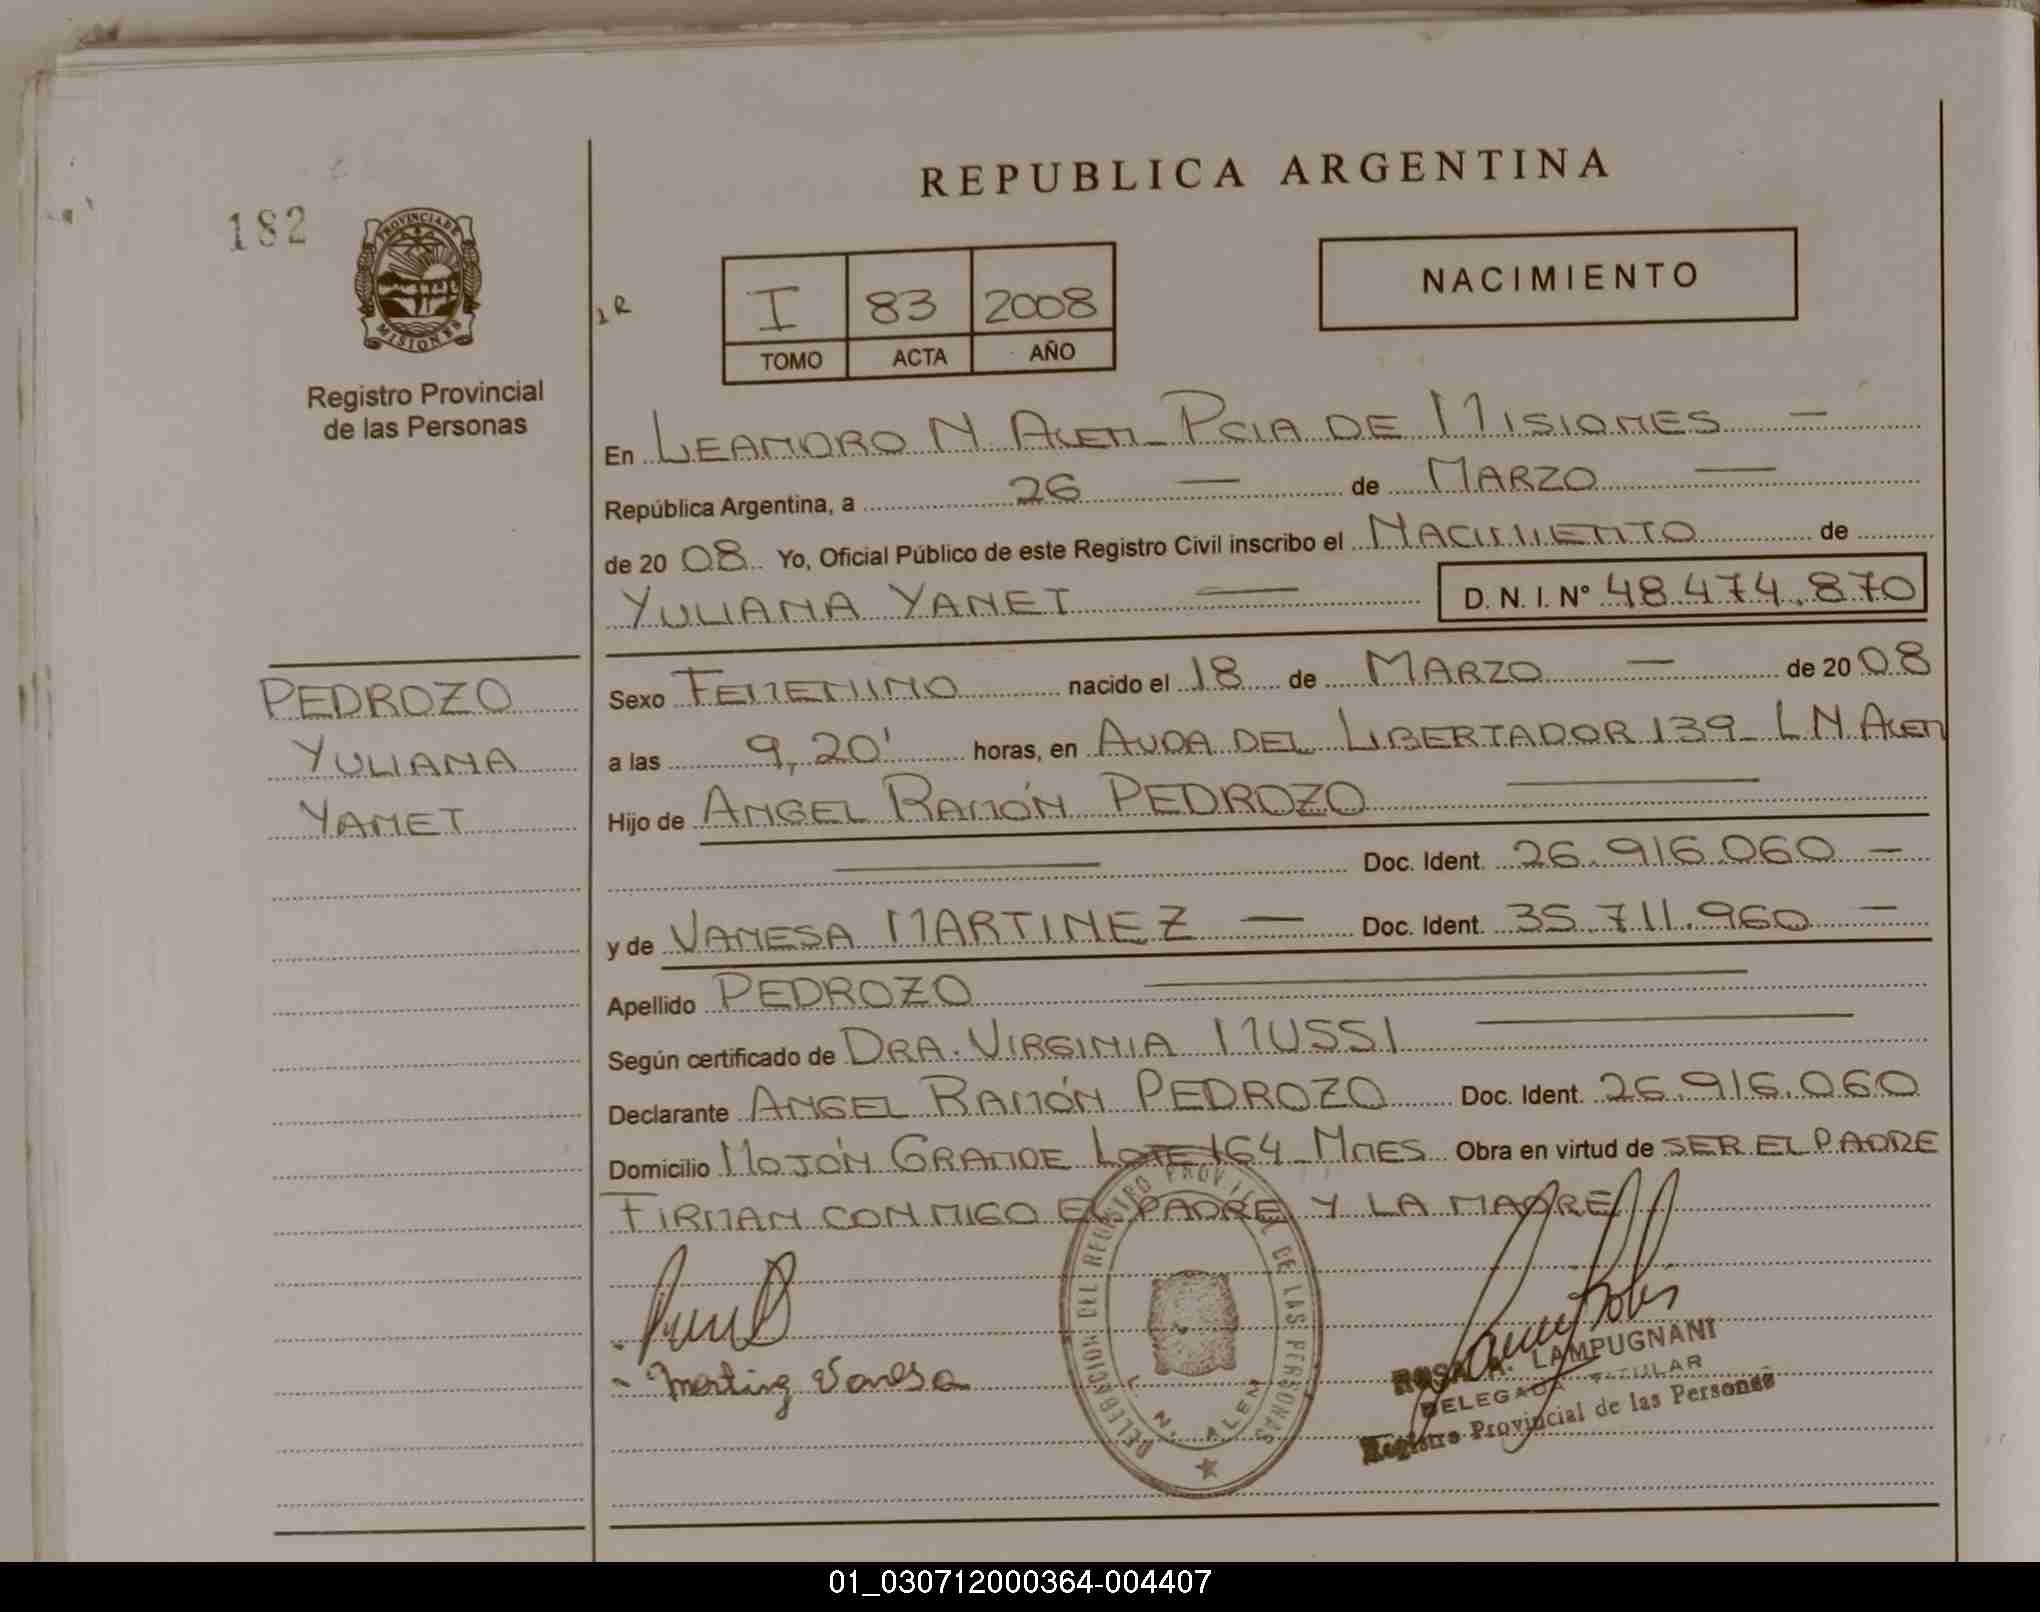 REPUBLICA ARGENTINA
182
PROVINCIA DE
MISIONES
Registro Provincial
de las Personas
1R
I 83 2008
TOMO ACTA AÑO
NACIMIENTO
En LEANDRO N. ALEM - PCIA DE MISIONES —
República Argentina, a 26 — de MARZO —
de 20 08 Yo, Oficial Público de este Registro Civil inscribo el NACIMIENTO de
YULIANA YANET — D. N. I. N° 48.474.870
PEDROZO
YULIANA
YANET
Sexo FEMENINO nacido el 18 de MARZO — de 20 08
a las 9,20' horas, en AVDA DEL LIBERTADOR 139 - L N ALEM
Hijo de ANGEL RAMÓN PEDROZO —
— Doc. Ident. 26.916.060 —
y de VANESA MARTINEZ — Doc. Ident. 35.711.960 —
Apellido PEDROZO —
Según certificado de DRA. VIRGINIA MUSSI —
Declarante ANGEL RAMÓN PEDROZO Doc. Ident. 26.916.060
Domicilio MOJÓN GRANDE LOTE 164 - MNES Obra en virtud de SER EL PADRE
FIRMAN CONMIGO EL PADRE Y LA MADRE
- Martinez Vanesa
DELEGACION DEL REGISTRO PROVINCIAL DE LAS PERSONAS
L. N. ALEM
ROSA A. LAMPUGNANI
DELEGADA TITULAR
Registro Provincial de las Personas
01_030712000364-004407